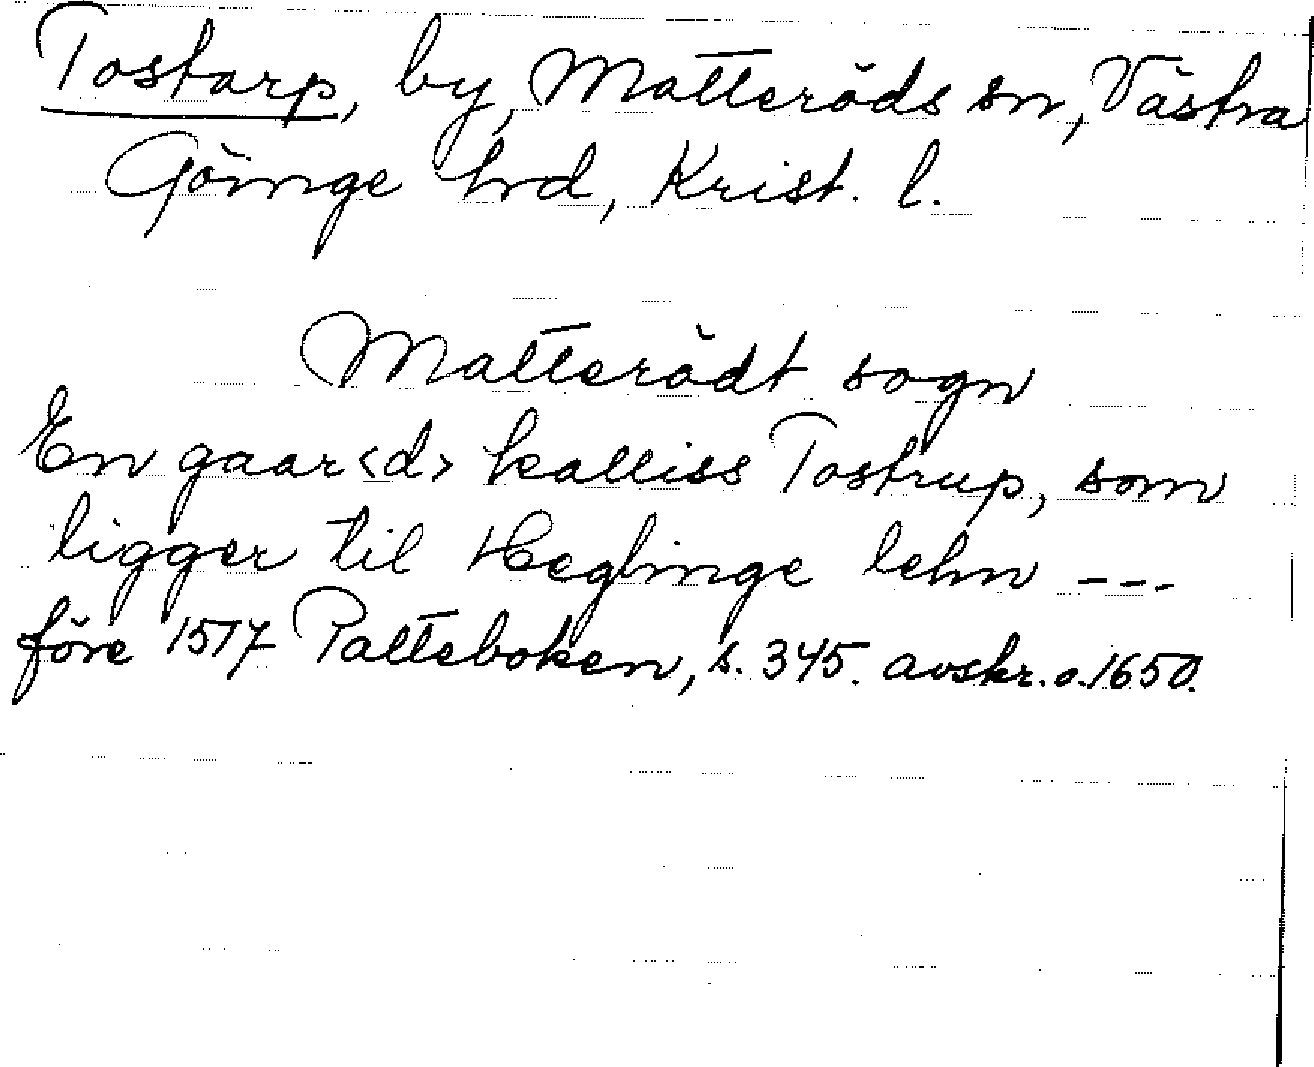 Tostarp, by, Matteröds sn, Västra
Göinge hrd, Krist. l.
Matterödt sogn
En gaar<d> kalliss Tostrup, som
ligger til Heglinge lehn ---
före 1517 Palteboken, s. 345. avskr. o. 1650.